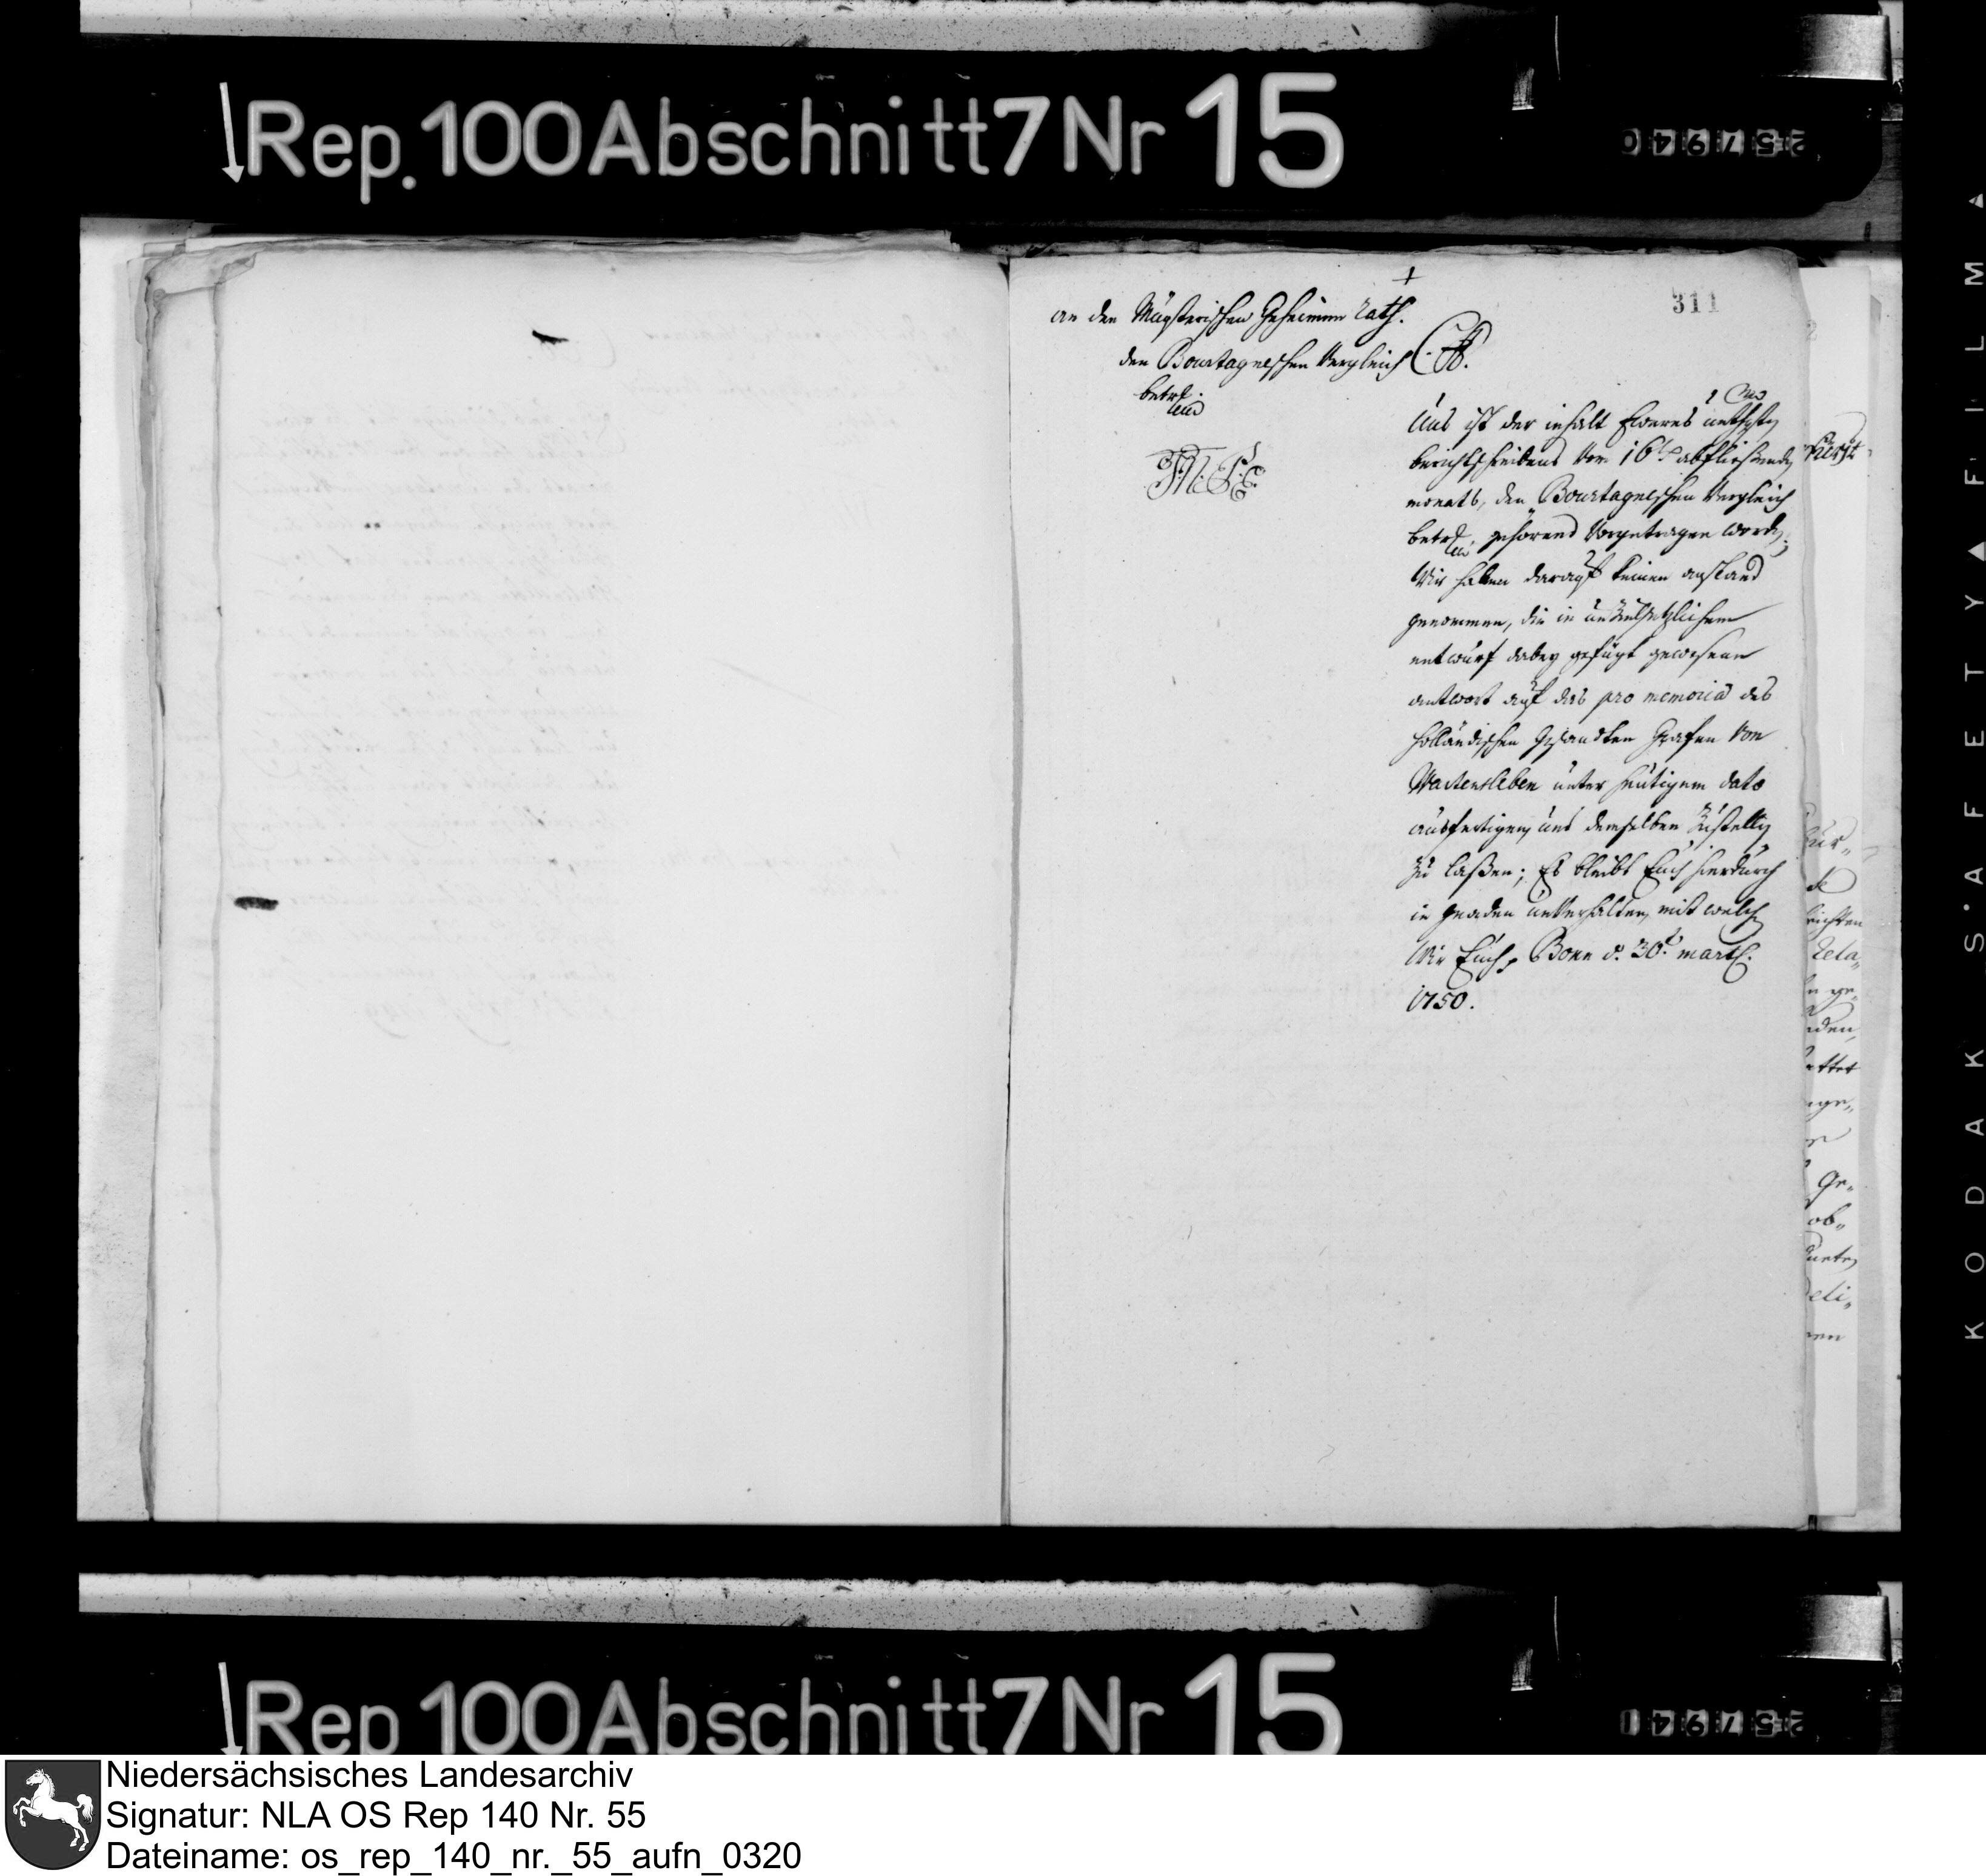 Rep. 100 Abschnitt 7 Nr 15
311
an den Münsterischen Geheimen rath.
den Bourtagneschen Vergleich
betrd.
CA.
Uns ist der inhalt Eweres
berichtschreibens vom 16t abfließenden
monats, den Bourtagneschen Vergleich
betrd. gehörend Vorgetragen worden;
Wir haben darauf keinen anstand
genommen, die in unzielsetzlichem
entwurf dabey gefügt gewesene
antwort auf das pro memoria des
holländischen Gesandten Grafen von
Wartensleben unter heütigem dato
ausfertigen, und demselben zustellen
zu laßen; Es bleibt Euch hierdurch
in gnaden unverhalten, mit welchen
Wir Euch Bonn d. 30t. martij.
1750.
KODAK SAFETY FILM
Rep 100 Abschnitt 7 Nr 15
Niedersächsisches Landesarchiv
Signatur: NLA OS Rep 140 Nr. 55
Dateiname: os_rep_140_nr._55_aufn_0320